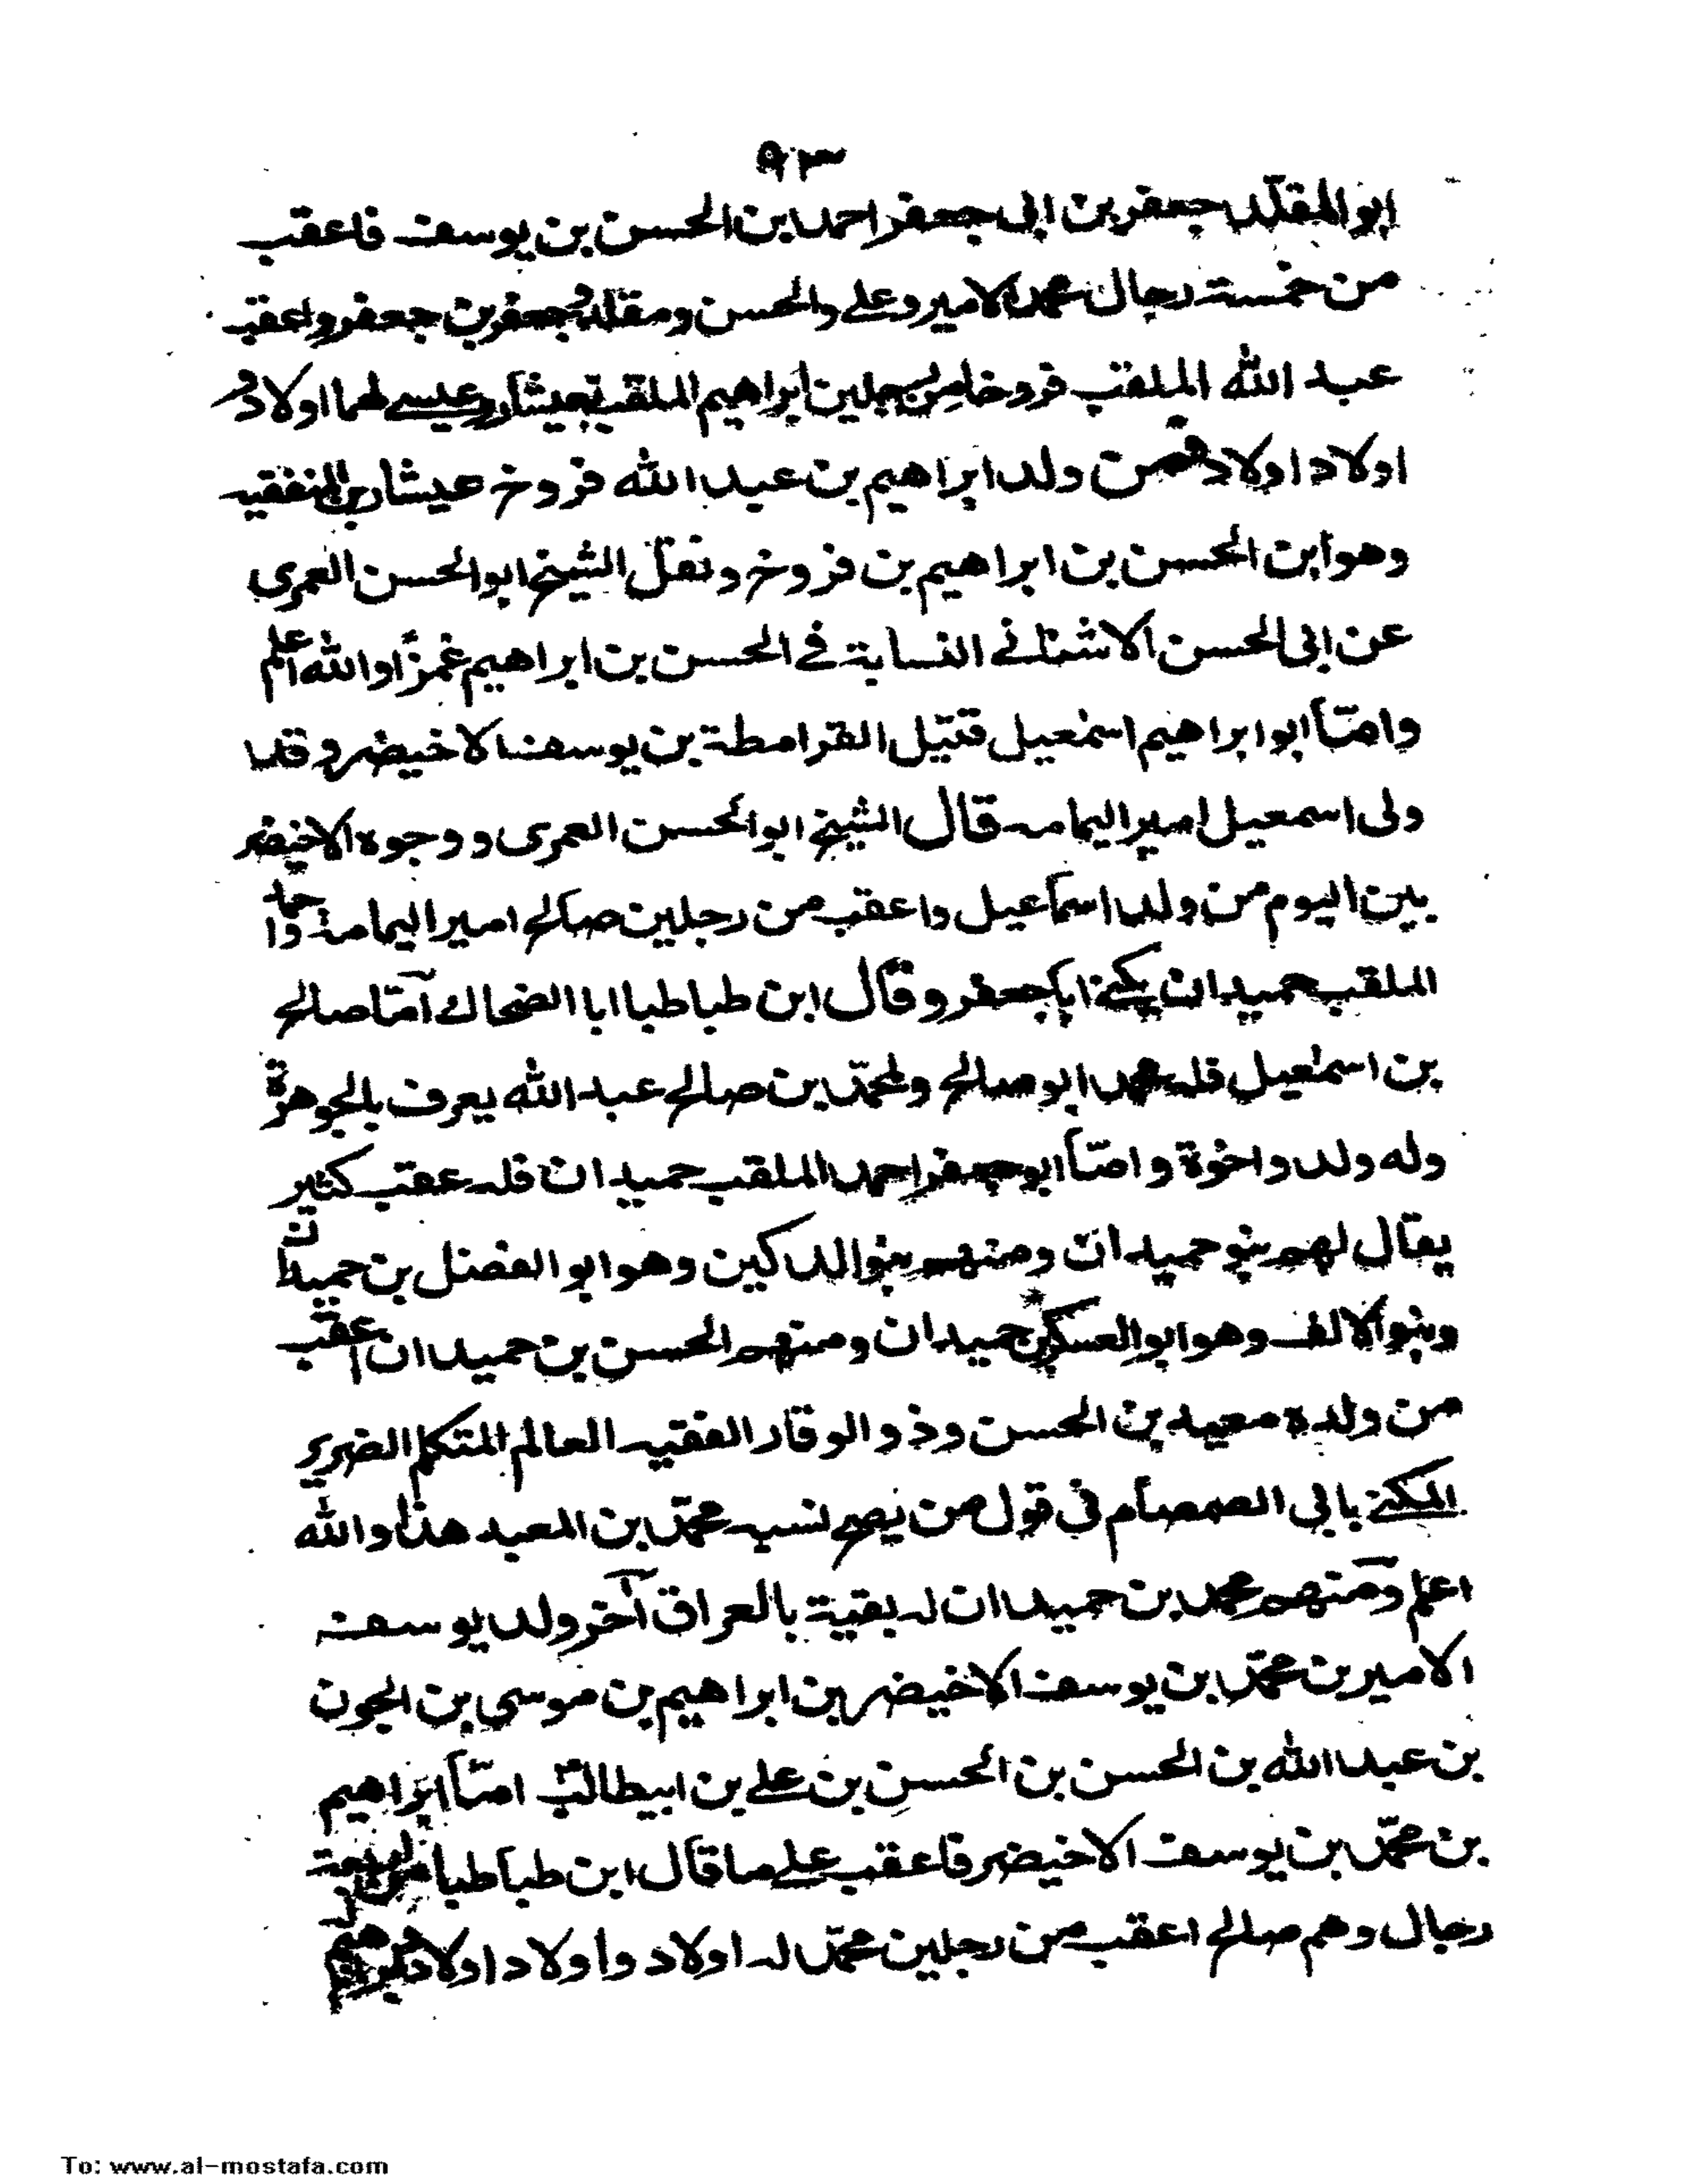 ٩٣
ابو المقلد جعفر بن ابى جعفر احمد بن الحسن بن يوسف فاعقب
من خمسة رجال محمد الامير وعلى والحسن ومقلد وجعفر بن جعفر واعقب
عبد الله الملقب فروخا من رجلين ابراهيم الملقب بعيشار وعيسى لهما اولاد و
اولاد اولاد فمن ولد ابراهيم بن عبد الله فروخ عيشار بن
وهو ابن الحسن بن ابراهيم بن فروخ ونقل الشيخ ابو الحسن العمرى
عن ابى الحسن الاشنانى النسابة فى الحسن بن ابراهيم غمزا والله اعلم
وامّا ابو ابراهيم اسمعيل قتيل القرامطة بن يوسف الاخيضر وقد
ولى اسمعيل امير اليمامه قال الشيخ ابو الحسن العمرى ووجوه الاخيضر
بين اليوم من ولد اسماعيل واعقب من رجلين صالح امير اليمامة واحمد
الملقب حميدان يكنى ابا جعفر وقال ابن طباطبا ابا الضحاك امّا صالح
بن اسمعيل فله محمد ابو صالح ولمحمّد بن صالح عبد الله يعرف بالجوهرة
وله ولد واخوة وامّا ابو جعفر احمد الملقب حميدان فله عقب كثير
يقال لهم بنو حميدان ومنهم بنو الدكين وهو ابو الفضل بن حميدان
وبنو الالف وهو ابو العسكر بن حميدان ومنهم الحسن بن حميدان اعقب
من ولده معبد بن الحسن وذو الوقار الفقيه العالم المتكلم الضرير
المكنى بابى الصمصام فى قول من يصح نسبه محمّد بن المعبد هذا والله
اعلم ومنهم محمد بن حميدان له بقية بالعراق آخر ولد يوسف
الامير بن محمّد بن يوسف الاخيضر بن ابراهيم بن موسى بن الجون
بن عبد الله بن الحسن بن الحسن بن على بن ابيطالب امّا ابراهيم
بن محمّد بن يوسف الاخيضر فاعقب على ما قال ابن طباطبا من
رجال وهم صالح اعقب من رجلين محمّد له اولاد واولاد اولاد
To: www.al-mostafa.com